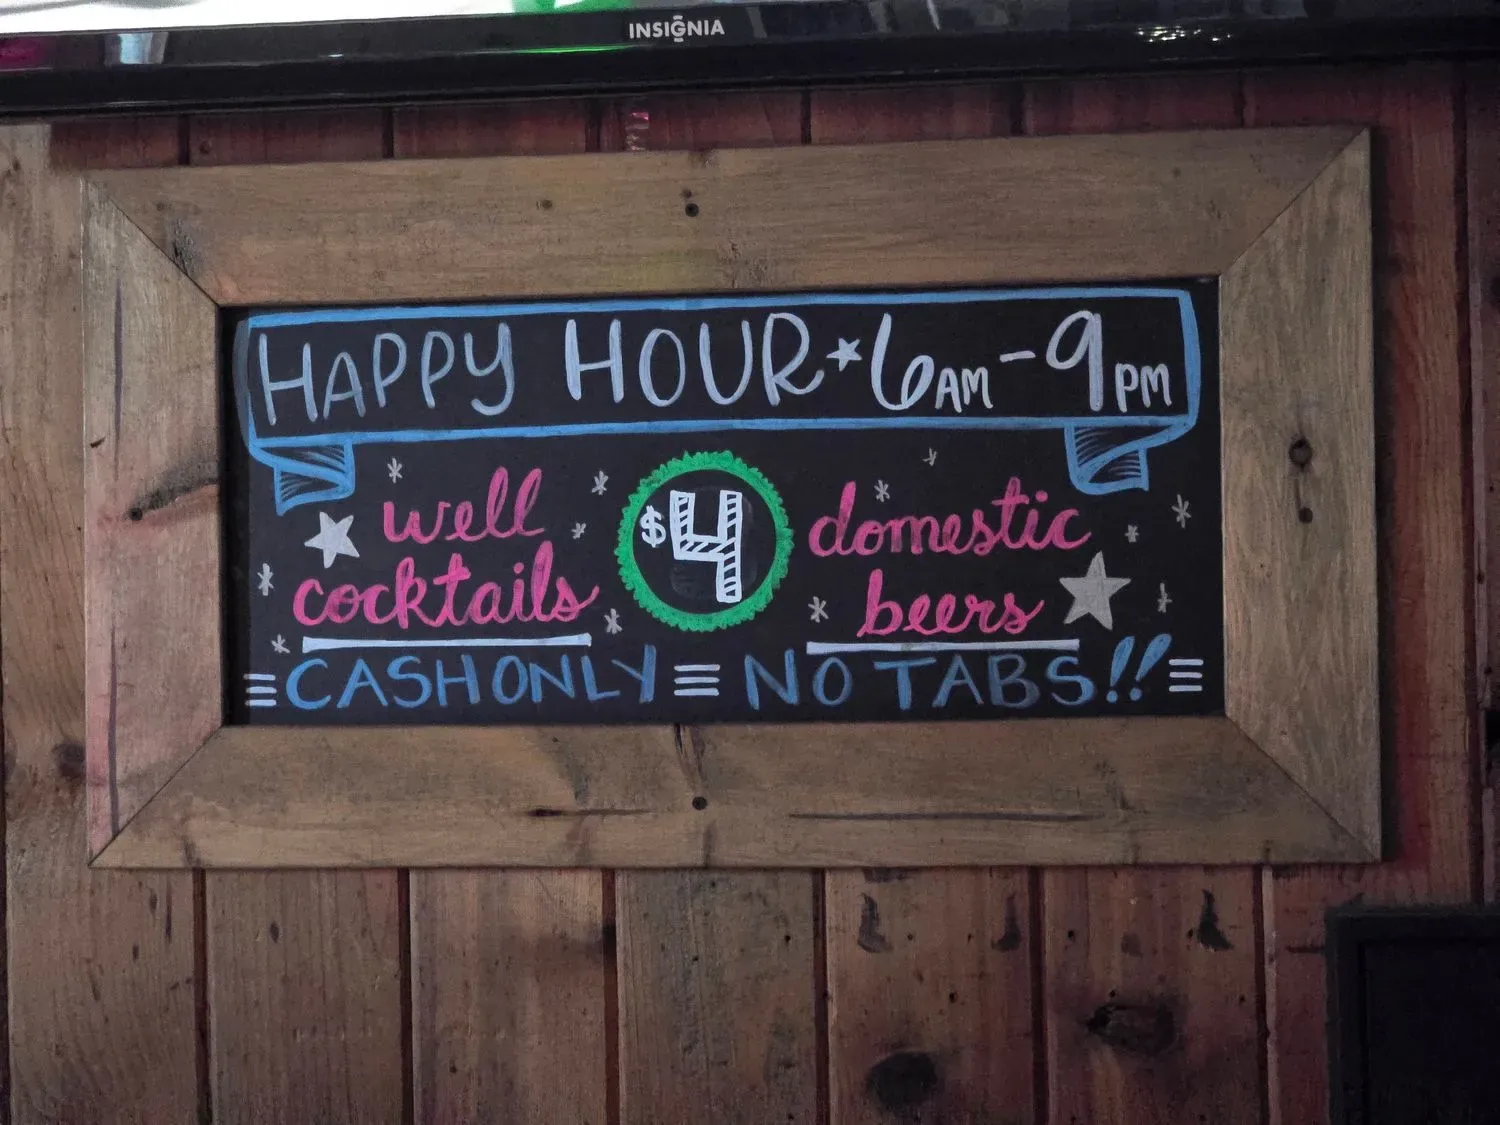 INSIGNIA
HAPPY HOUR ★ 6AM - 9PM
well
cocktails
$4
domestic
beers
CASH ONLY ≡ NO TABS!!